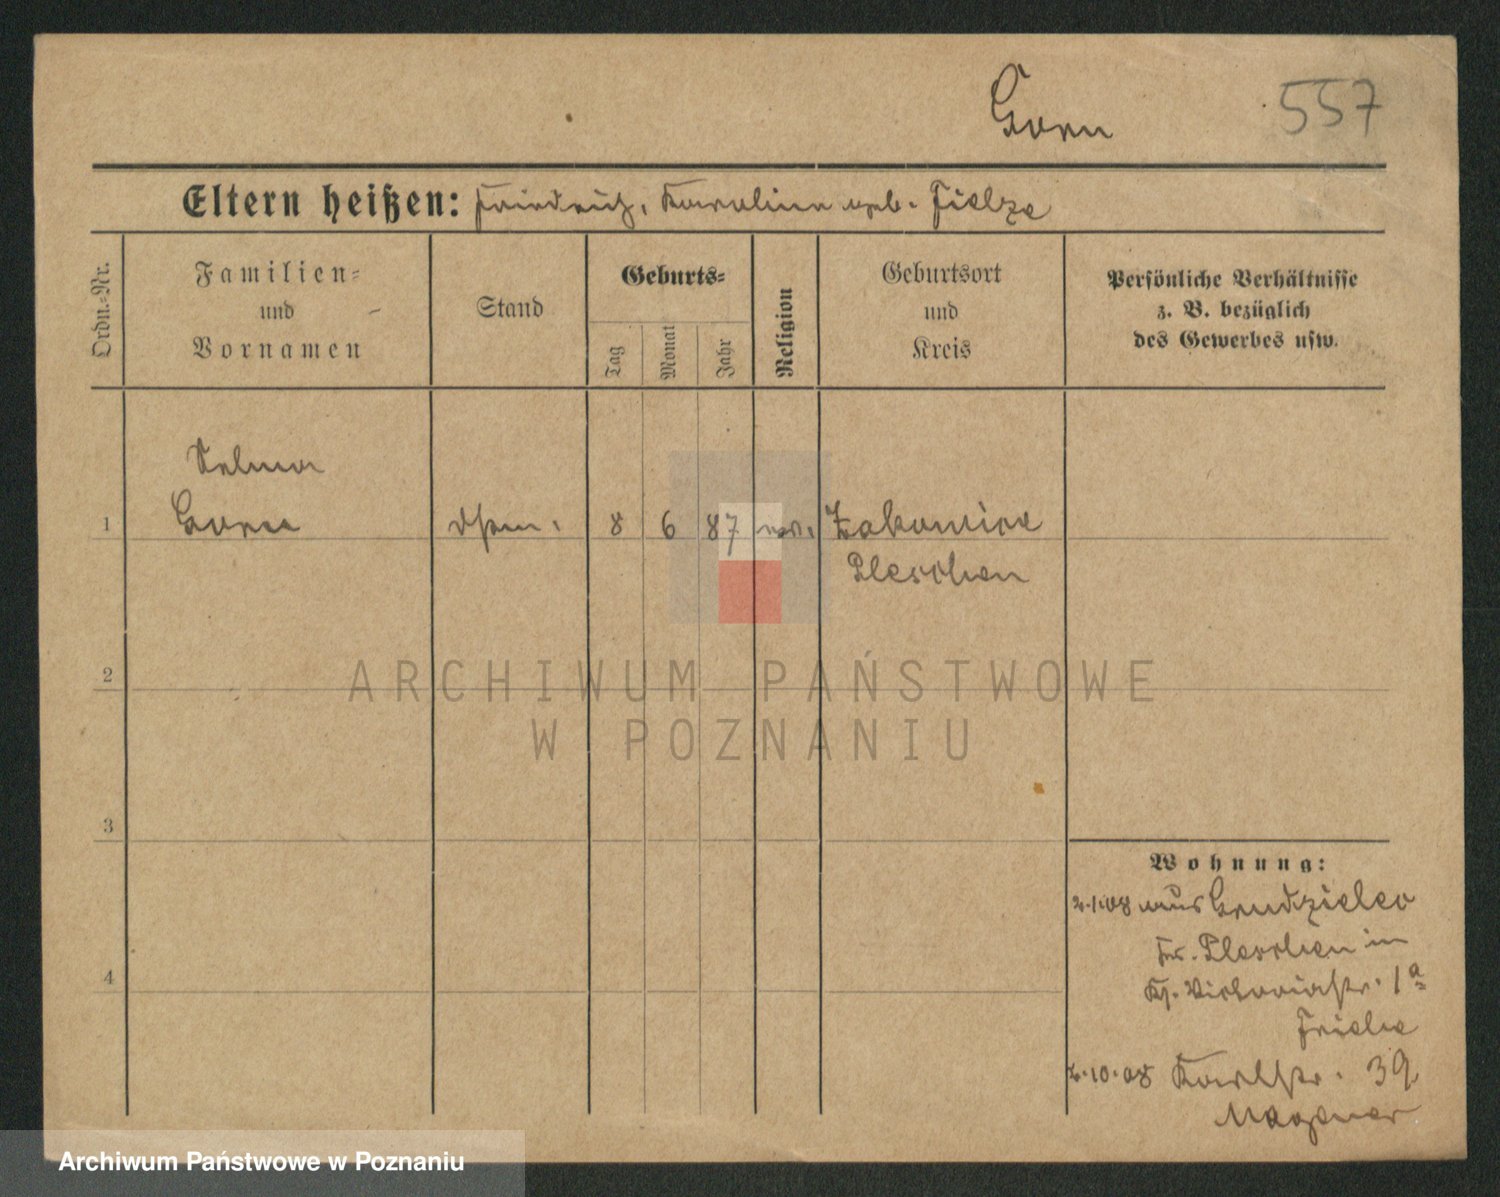 Gorn
557
Eltern heißen: Friedrich, Karoline geb. Fielze
Ordn.=Nr.
Familien=
und
Vornamen
Stand
Geburts=
Tag
Monat
Jahr
Religion
Geburtsort
und
Kreis
Persönliche Verhältnisse
z. B. bezüglich
des Gewerbes usw.
Selma
1 Gorn 8 6 87 ev. Zakowice
Pleschen
2
ARCHIWUM PAŃSTWOWE
W POZNANIU
3
Wohnung:
2.1.08 aus Grudzielec
Kr. Pleschen in
Victoriastr. 1a
Fricke
2.10.08 Karlstr. 39
4
Wagener
Archiwum Państwowe w Poznaniu